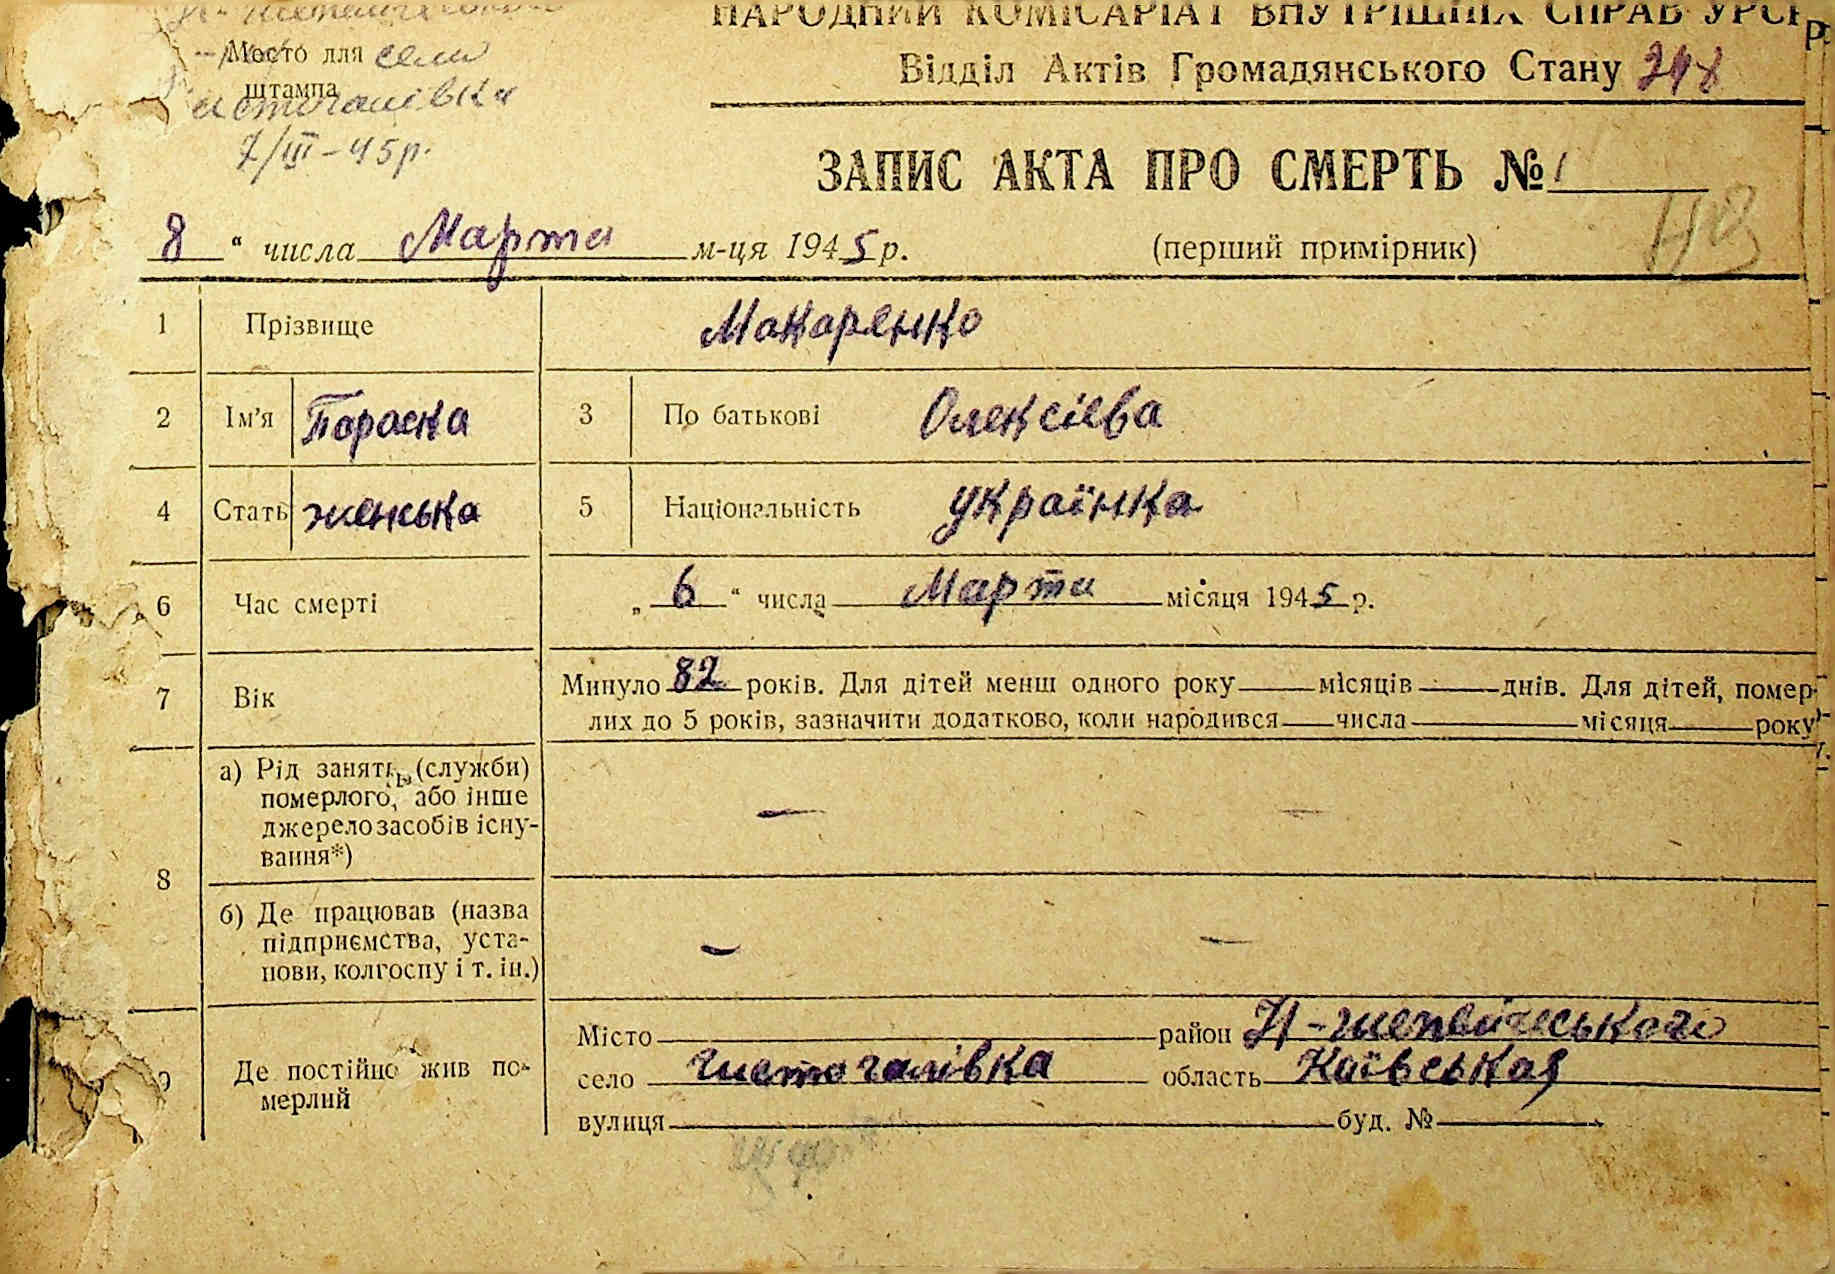 НАРОДНИЙ КОМІСАРІАТ ВНУТРІШНІХ СПРАВ УРСР
Відділ Актів Громадянського Стану
Место для села
штампа
7/III-45р.
ЗАПИС АКТА ПРО СМЕРТЬ № 1
8 " числа Марта м-ця 1945 р. (перший примірник)
1 Прізвище Макаренко
2 Ім'я Параска 3 По батькові Олексієва
4 Стать женська 5 Національність українка
6 Час смерті „ 6 " числа Марта місяця 1945 р.
7 Вік Минуло 82 років. Для дітей менш одного року місяців днів. Для дітей, помер-
лих до 5 років, зазначити додатково, коли народився числа місяця року
8 а) Рід занять (служби)
померлого, або інше
джерело засобів існу-
вання*) — —
б) Де працював (назва
підприємства, уста-
нови, колгоспу і т. ін.) — —
Місто район Н-шепелицького
9 Де постійно жив по- село чистогалівка область Київськая
мерлий
вулиця буд. №